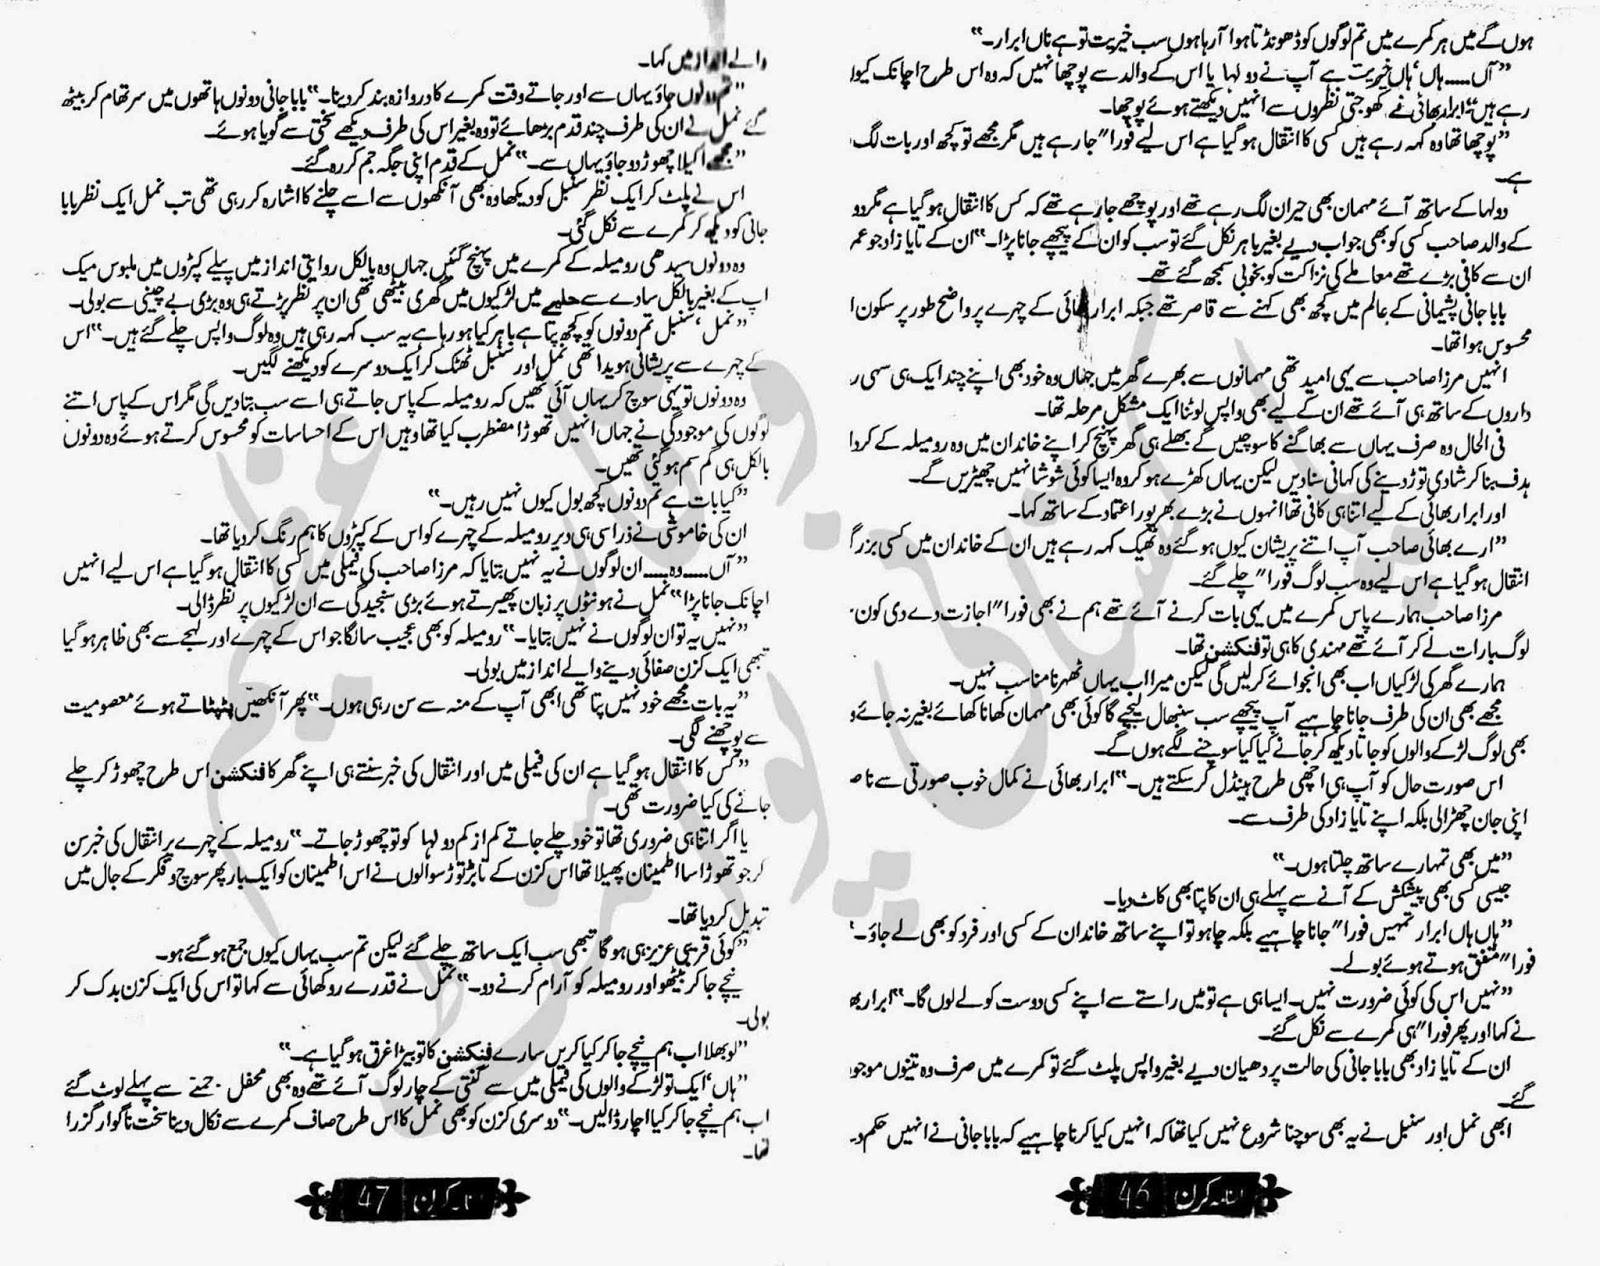 ہوں گے میں ہر کمرے میں تم لوگوں کو ڈھونڈتا ہوا آرہا ہوں سب خیریت تو ہے ناں ابرار۔‘‘
’’آں.....ہاں‘ ہاں خیریت ہے آپ نے دولہا یا اس کے والد سے پوچھا نہیں کہ وہ اس طرح اچانک کیوں
رہے ہیں‘‘ ابرار بھائی نے کھوجتی نظروں سے انہیں دیکھتے ہوئے پوچھا۔
’’پوچھا تھا وہ کہہ رہے ہیں کسی کا انتقال ہو گیا ہے اس لیے فورا’’ جارہے ہیں مگر مجھے تو کچھ اور بات لگ
ہے۔
دولہا کے ساتھ آئے مہمان بھی حیران لگ رہے تھے اور پوچھے جارہے تھے کہ کس کا انتقال ہو گیا ہے مگر دو
کے والد صاحب کسی کو بھی جواب دیے بغیر باہر نکل گئے تو سب کو ان کے پیچھے جانا پڑا۔‘‘ ان کے تایا زاد جو عمر
ان سے کافی بڑے تھے معاملے کی نزاکت کو بخوبی سمجھ گئے تھے۔
بابا جانی پشیمانی کے عالم میں کچھ بھی کہنے سے قاصر تھے جبکہ ابرار بھائی کے چہرے پر واضح طور پر سکون ا
محسوس ہوا تھا۔
انہیں مرزا صاحب سے یہی امید تھی مہمانوں سے بھرے گھر میں جہاں وہ خود بھی اپنے چند ایک ہی سی ر
داروں کے ساتھ ہی آئے تھے ان کے لیے بھی واپس لوٹنا ایک مشکل مرحلہ تھا۔
فی الحال وہ صرف یہاں سے بھاگنے کا سوچیں گے بھلے ہی گھر پہنچ کر اپنے خاندان میں وہ رومیلہ کے کردا
ہدف بنا کر شادی توڑ دینے کی کہانی سنادیں لیکن یہاں کھڑے ہو کر وہ ایسا کوئی شوشا نہیں چھیڑیں گے۔
اور ابرار بھائی کے لیے اتنا ہی کافی تھا انہوں نے بڑے بھرپور اعتماد کے ساتھ کہا۔
’’ارے بھائی صاحب آپ اتنے پریشان کیوں ہو گئے وہ ٹھیک کہہ رہے ہیں ان کے خاندان میں کسی بزرگ
انتقال ہو گیا ہے اس لیے وہ سب لوگ فورا’’ چلے گئے۔
مرزا صاحب ہمارے پاس کمرے میں یہی بات کرنے آئے تھے ہم نے بھی فورا’’ اجازت دے دی کون
لوگ بارات لے کر آئے تھے مہندی کا ہی تو فنکشن تھا۔
ہمارے گھر کی لڑکیاں اب بھی انجوائے کرلیں گی لیکن میرا اب یہاں ٹھہرنا مناسب نہیں۔
مجھے بھی ان کی طرف جانا چاہیے آپ پیچھے سب سنبھال لیجیے گا کوئی بھی مہمان کھانا کھائے بغیر نہ جائے و
بھی لوگ لڑکے والوں کو جاتا دیکھ کر جانے کیا کیا سوچنے لگے ہوں گے۔
اس صورت حال کو آپ ہی اچھی طرح ہینڈل کر سکتے ہیں۔‘‘ ابرار بھائی نے کمال خوب صورتی سے نا ص
اپنی جان چھڑالی بلکہ اپنے تایا زاد کی طرف سے۔
’’میں بھی تمہارے ساتھ چلتا ہوں۔‘‘
جیسی کسی بھی پیشکش کے آنے سے پہلے ہی ان کا پتا بھی کاٹ دیا۔
’’ہاں ہاں ابرار تمہیں فورا’’ جانا چاہیے بلکہ چاہو تو اپنے ساتھ خاندان کے کسی اور فرد کو بھی لے جاؤ۔‘‘
فورا’’ متفق ہوتے ہوئے بولے۔
’’نہیں اس کی کوئی ضرورت نہیں۔ ایسا ہی ہے تو میں راستے سے اپنے کسی دوست کو لے لوں گا۔‘‘ ابرار بھ
نے کہا اور پھر فورا’’ ہی کمرے سے نکل گئے۔
ان کے تایا زاد بھی بابا جانی کی حالت پر دھیان دیے بغیر واپس پلٹ گئے تو کمرے میں صرف وہ تینوں موجود
گئے۔
ابھی نمل اور سنبل نے یہ بھی سوچنا شروع نہیں کیا تھا کہ انہیں کیا کرنا چاہیے کہ بابا جانی نے انہیں حکم د
ماہنامہ کرن 46
والے انداز میں کہا۔
’’تم دونوں جاؤ یہاں سے اور جاتے وقت کمرے کا دروازہ بند کردینا۔‘‘ بابا جانی دونوں ہاتھوں میں سر تھام کر بیٹھ
گئے نمل نے ان کی طرف چند قدم بڑھائے تو وہ بغیر اس کی طرف دیکھے سختی سے گویا ہوئے۔
’’مجھے اکیلا چھوڑ دو جاؤ یہاں سے۔‘‘ نمل کے قدم اپنی جگہ جم کر رہ گئے۔
اس نے پلٹ کر ایک نظر سنبل کو دیکھا وہ بھی آنکھوں سے اسے چلنے کا اشارہ کر رہی تھی تب نمل ایک نظر بابا
جانی کو دیکھ کر کمرے سے نکل گئی۔
وہ دونوں سیدھی رومیلہ کے کمرے میں پہنچ گئیں جہاں وہ بالکل روایتی انداز میں پیلے کپڑوں میں ملبوس میک
اپ کے بغیر بالکل سادے سے حلیے میں لڑکیوں میں گھری بیٹھی تھی ان پر نظر پڑتے ہی وہ بڑی بے چینی سے بولی۔
’’نمل‘ سنبل تم دونوں کو کچھ پتا ہے باہر کیا ہو رہا ہے یہ سب کہہ رہی ہیں وہ لوگ واپس چلے گئے ہیں۔‘‘ اس
کے چہرے سے پریشانی ہویدا تھی نمل اور سنبل ٹھٹک کر ایک دوسرے کو دیکھنے لگیں۔
وہ دونوں تو یہی سوچ کر یہاں آئی تھیں کہ رومیلہ کے پاس جاتے ہی اسے سب بتادیں گی مگر اس کے پاس اتنے
لوگوں کی موجودگی نے جہاں انہیں تھوڑا مضطرب کیا تھا وہیں اس کے احساسات کو محسوس کرتے ہوئے وہ دونوں
بالکل ہی گم سم ہو گئی تھیں۔
’’کیا بات ہے تم دونوں کچھ بول کیوں نہیں رہیں۔‘‘
ان کی خاموشی نے ذرا سی ہی دیر رومیلہ کے چہرے کو اس کے کپڑوں کا ہم رنگ کردیا تھا۔
’’آں.....وہ.....ان لوگوں نے یہ نہیں بتایا کہ مرزا صاحب کی فیملی میں کسی کا انتقال ہو گیا ہے اس لیے انہیں
اچانک جانا پڑا‘‘ نمل نے ہونٹوں پر زبان پھیرتے ہوئے بڑی سنجیدگی سے ان لڑکیوں پر نظر ڈالی۔
’’نہیں یہ تو ان لوگوں نے نہیں بتایا۔‘‘ رومیلہ کو بھی عجیب سا لگا جو اس کے چہرے اور لہجے سے بھی ظاہر ہو گیا
تبھی ایک کزن صفائی دینے والے انداز میں بولی۔
’’یہ بات مجھے خود نہیں پتا تھی ابھی آپ کے منہ سے سن رہی ہوں۔‘‘ پھر آنکھیں پٹپٹاتے ہوئے معصومیت
سے پوچھنے لگی۔
’’کس کا انتقال ہو گیا ہے ان کی فیملی میں اور انتقال کی خبر سنتے ہی اپنے گھر کا فنکشن اس طرح چھوڑ کر چلے
جانے کی کیا ضرورت تھی۔
یا اگر اتنا ہی ضروری تھا تو خود چلے جاتے کم از کم دولہا کو تو چھوڑ جاتے۔‘‘ رومیلہ کے چہرے پر انتقال کی خبر سن
کر جو تھوڑا سا اطمینان پھیلا تھا اس کزن کے تابڑ توڑ سوالوں نے اس اطمینان کو ایک بار پھر سوچ و فکر کے جال میں
تبدیل کردیا تھا۔
’’کوئی قریبی عزیز ہی ہو گا تبھی سب ایک ساتھ چلے گئے لیکن تم سب یہاں کیوں جمع ہو گئے ہو۔
نیچے جا کر بیٹھو اور رومیلہ کو آرام کرنے دو۔‘‘ نمل نے قدرے رکھائی سے کہا تو اس کی ایک کزن بدک کر
بولی۔
’’لو بھلا اب ہم نیچے جا کر کیا کریں سارے فنکشن کا تو بیڑا غرق ہو گیا ہے۔‘‘
’’ہاں‘ ایک تو لڑکے والوں کی فیملی میں سے گنتی کے چار لوگ آئے تھے وہ بھی محفل جمنے سے پہلے لوٹ گئے
اب ہم نیچے جا کر کیا اچار ڈالیں۔‘‘ دوسری کزن کو بھی نمل کا اس طرح صاف کمرے سے نکال دینا سخت ناگوار گزرا
تھا۔
ماہنامہ کرن 47
پاکستانی پوائنٹ